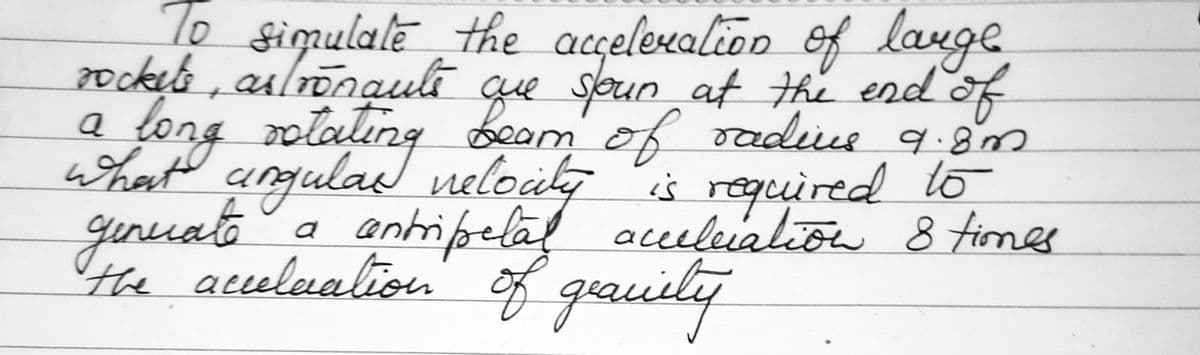 To simulate the acceleration of large
rockets, astronauts are spun at the end of
a long rotating beam of radius 9.8m
what angular velocity is required to
generate a centripetal acceleration 8 times
the acceleration of gravity